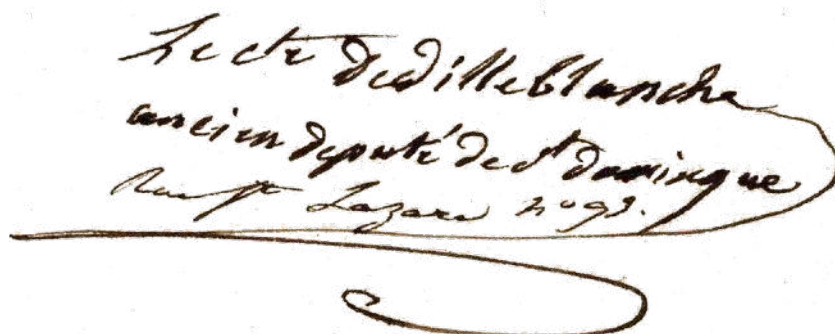 Le cte de Villeblanche
ancien deputé de st domingue
Rue st Lazare no 93.